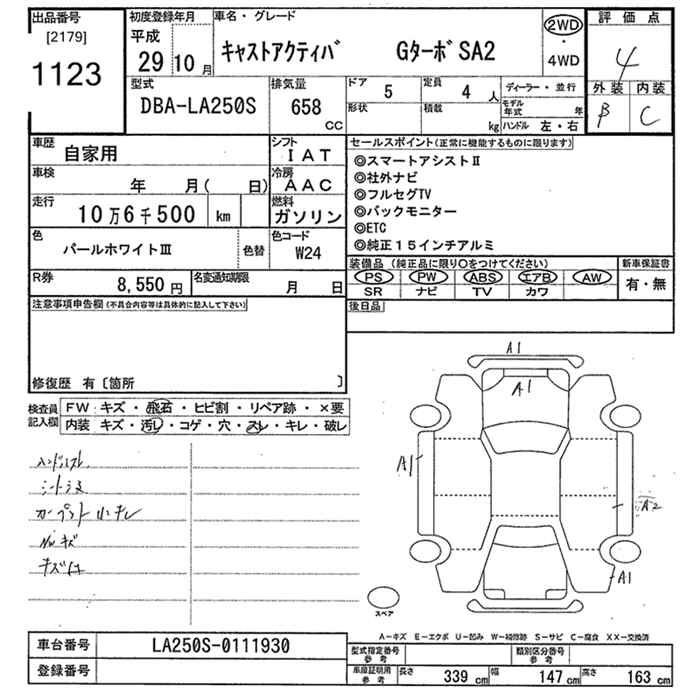 出品番号 初度登録年月 車名・グレード 評価点
[2179] 平成 2WD
1123 29 10月 キャストアクティバ Gターボ SA2 ・ 4
4WD
型式 排気量 ドア 5 定員 4人 ディーラー・並行 外装 内装
DBA-LA250S 658 CC 形状 積載 kg モデル年式 年 B C
ハンドル 左・右
車歴 自家用 シフト IAT セールスポイント(正常に機能するものに限ります)
車検 年 月( 日) 冷房 AAC ◎スマートアシストⅡ
走行 10万6千500 km 燃料 ガソリン ◎社外ナビ
◎フルセグTV
◎バックモニター
◎ETC
◎純正15インチアルミ
色 パールホワイトⅢ 色替 色コード W24
装備品(純正品に限り○をつけてください) 新車保証書
R券 8,550円 名変通知期限 月 日 PS PW ABS エアB AW 有・無
SR ナビ TV カワ
注意事項申告欄(不具合内容等は具体的に記入して下さい) 後日品
修復歴 有〔箇所 〕
検査員記入欄 FW キズ・飛石・ヒビ割・リペア跡・×要
内装 キズ・汚れ・コゲ・穴・スレ・キレ・破レ
ハンドルスレ
キズ
A1
A1
A1
A2
A1
スペア
A-キズ E-エクボ U-凹み W-補修跡 S-サビ C-腐食 XX-交換済
車台番号 LA250S-0111930
登録番号
型式指定番号 参考 類別区分番号 参考
車庫証明用 参考 長さ 339 cm 幅 147 cm 高さ 163 cm